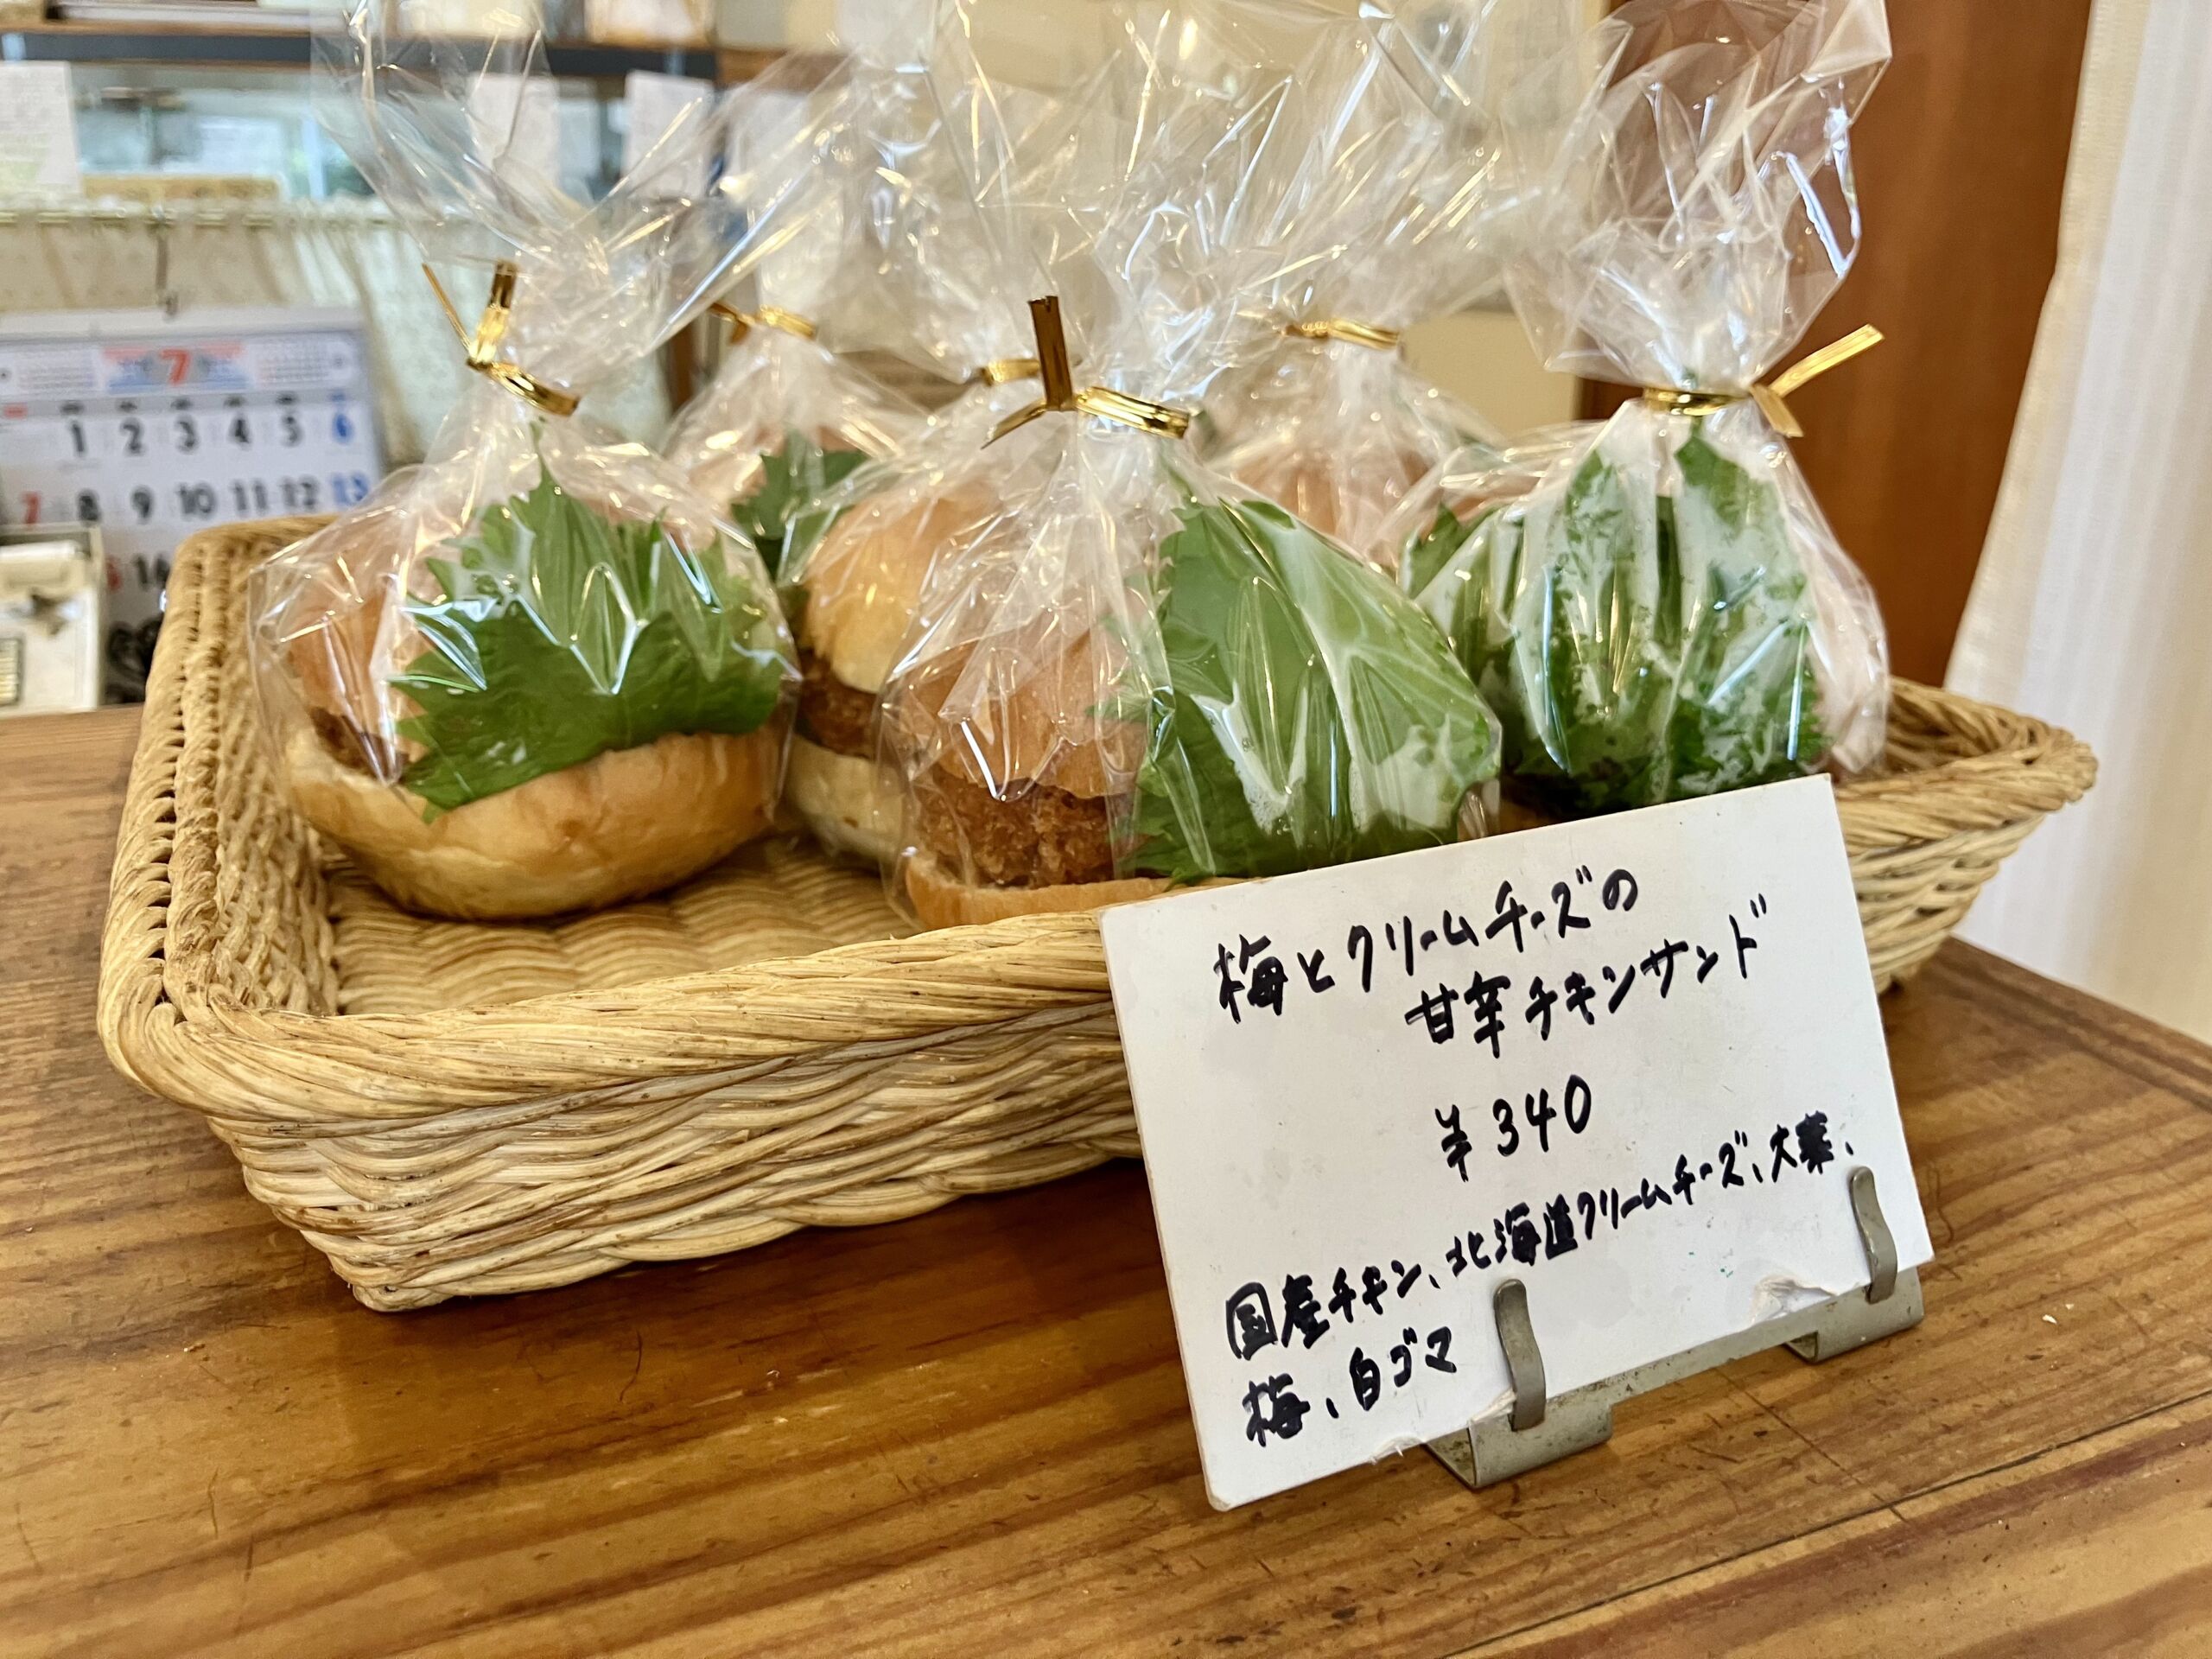 梅とクリームチーズの
甘辛チキンサンド
¥340
国産チキン、北海道クリームチーズ、大葉、
梅、白ゴマ
7
1 2 3 4 5 6
7 8 9 10 11 12 13
16